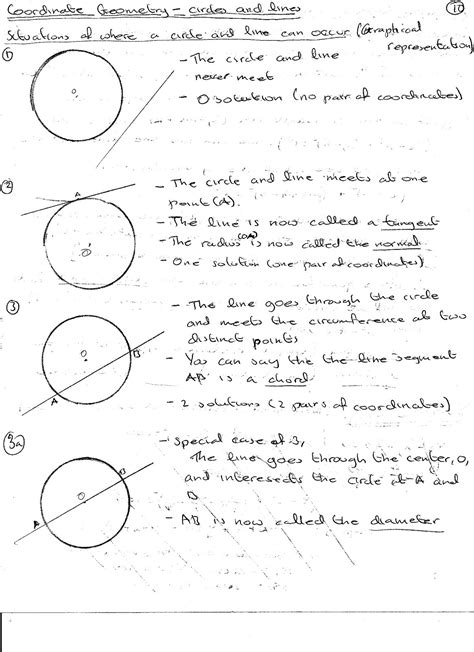 Coordinate Geometry - circles and lines
Situations of where a circle and line can occur (Graphical representation)
①
O
- The circle and line
never meet
- 0 solution (no pair of coordinates)
②
A
O
- The circle and line meets at one
point (A).
- The line is now called a tangent
- The radius (OA) is now called the normal
- One solution (one pair of coordinates)
③
O
A
B
- The line goes through the circle
and meets the circumference at two
distinct points
- You can say the the line segment
AB is a chord
- 2 solutions (2 pairs of coordinates)
3a
O
A
B
- special case of 3,
The line goes through the center, O,
and intersects the circle at A and
B
- AB is now called the diameter